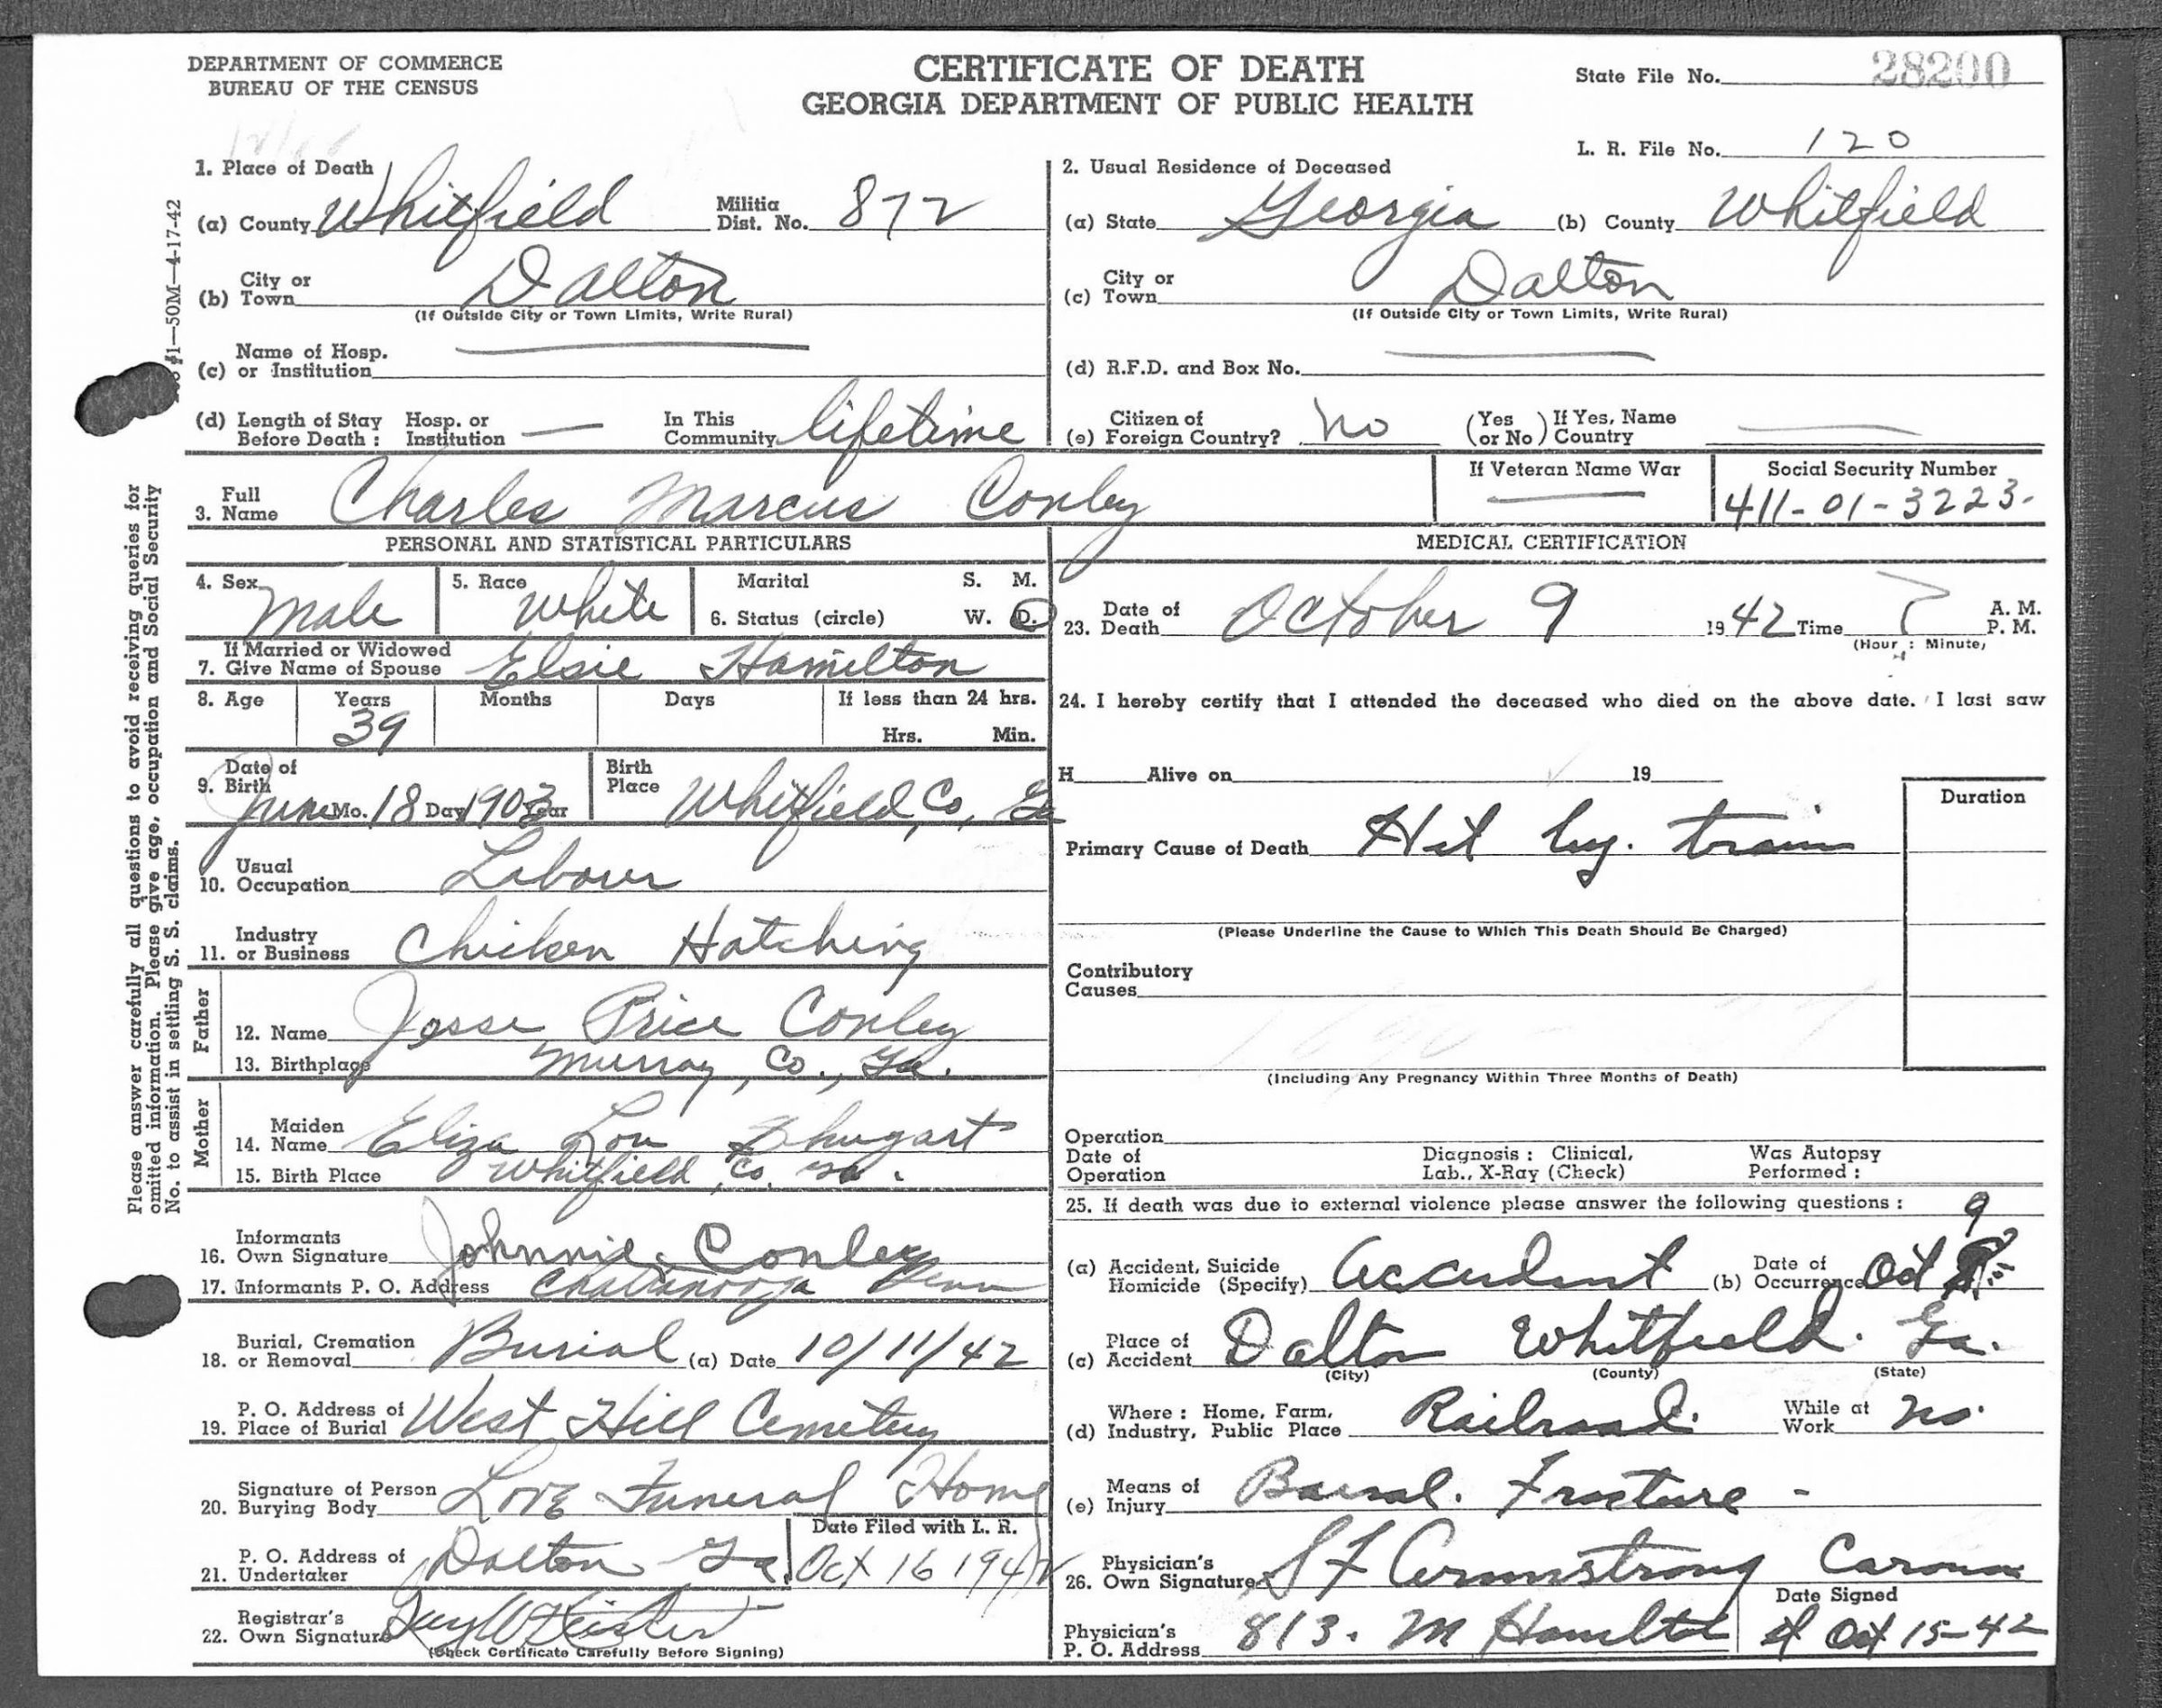 DEPARTMENT OF COMMERCE
BUREAU OF THE CENSUS
CERTIFICATE OF DEATH
GEORGIA DEPARTMENT OF PUBLIC HEALTH
State File No. 28200
L. R. File No. 120
1—50M—4-17-42
Please answer carefully all questions to avoid receiving queries for
omitted information. Please give age, occupation and Social Security
No. to assist in settling S. S. claims.
1. Place of Death
(a) County Whitfield Militia Dist. No. 872
(b) City or Town Dalton
(If Outside City or Town Limits, Write Rural)
(c) Name of Hosp. or Institution —
(d) Length of Stay Before Death : Hosp. or Institution — In This Community lifetime
2. Usual Residence of Deceased
(a) State Georgia (b) County Whitfield
(c) City or Town Dalton
(If Outside City or Town Limits, Write Rural)
(d) R.F.D. and Box No. —
(e) Citizen of Foreign Country? No (Yes or No) If Yes, Name Country —
3. Full Name Charles Marcus Conley
If Veteran Name War —
Social Security Number
411-01-3223-
PERSONAL AND STATISTICAL PARTICULARS
4. Sex Male 5. Race White Marital S. M.
6. Status (circle) W. D.
7. If Married or Widowed Give Name of Spouse Elsie Hamilton
8. Age Years Months Days If less than 24 hrs.
39 Hrs. Min.
9. Date of Birth June Mo. 18 Day 1903 Year Birth Place Whitfield, Co, Ga
10. Usual Occupation Laborer
11. Industry or Business Chicken Hatching
Father
12. Name Jesse Price Conley
13. Birthplace Murray, Co., Ga.
Mother
14. Maiden Name Eliza Lou Shugart
15. Birth Place Whitfield, Co. Ga.
16. Informants Own Signature Johnnie Conley
17. Informants P. O. Address Chattanooga Tenn
18. Burial, Cremation or Removal Burial (a) Date 10/11/42
19. P. O. Address of Place of Burial West Hill Cemetery
20. Signature of Person Burying Body Love Funeral Home
21. P. O. Address of Undertaker Dalton Ga. Date Filed with L. R. Oct 16 1942
22. Registrar's Own Signature
(Check Certificate Carefully Before Signing)
MEDICAL CERTIFICATION
23. Date of Death October 9 1942 Time ? A. M. P. M.
(Hour : Minute)
24. I hereby certify that I attended the deceased who died on the above date. I last saw
H Alive on 19
Duration
Primary Cause of Death Hit by. train
(Please Underline the Cause to Which This Death Should Be Charged)
Contributory Causes
(Including Any Pregnancy Within Three Months of Death)
Operation
Date of Operation Diagnosis : Clinical, Lab., X-Ray (Check) Was Autopsy Performed :
25. If death was due to external violence please answer the following questions :
(a) Accident, Suicide Homicide (Specify) Accident (b) Date of Occurrence Oct 9
(c) Place of Accident Dalton Whitfield. Ga.
(City) (County) (State)
(d) Where : Home, Farm, Industry, Public Place Railroad. While at Work no.
(e) Means of Injury Basal. Fracture -
26. Physician's Own Signature S F Armstrong Coroner
Physician's P. O. Address 813. M Hamilton st Date Signed Oct 15-42